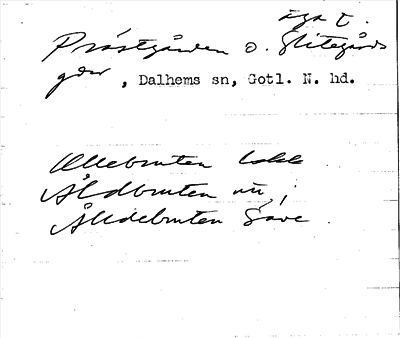 äga t.
Prästgården o. Hitegårds
gdr, Dalhems sn, Gotl. N. hd.
Ållebruten
Ålldbruten nu;
Ålldebruten Save